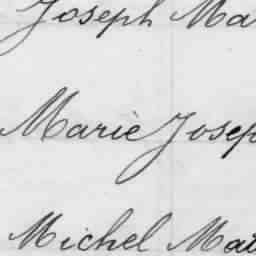 Joseph Ma
Marie Josep
Michel Mat